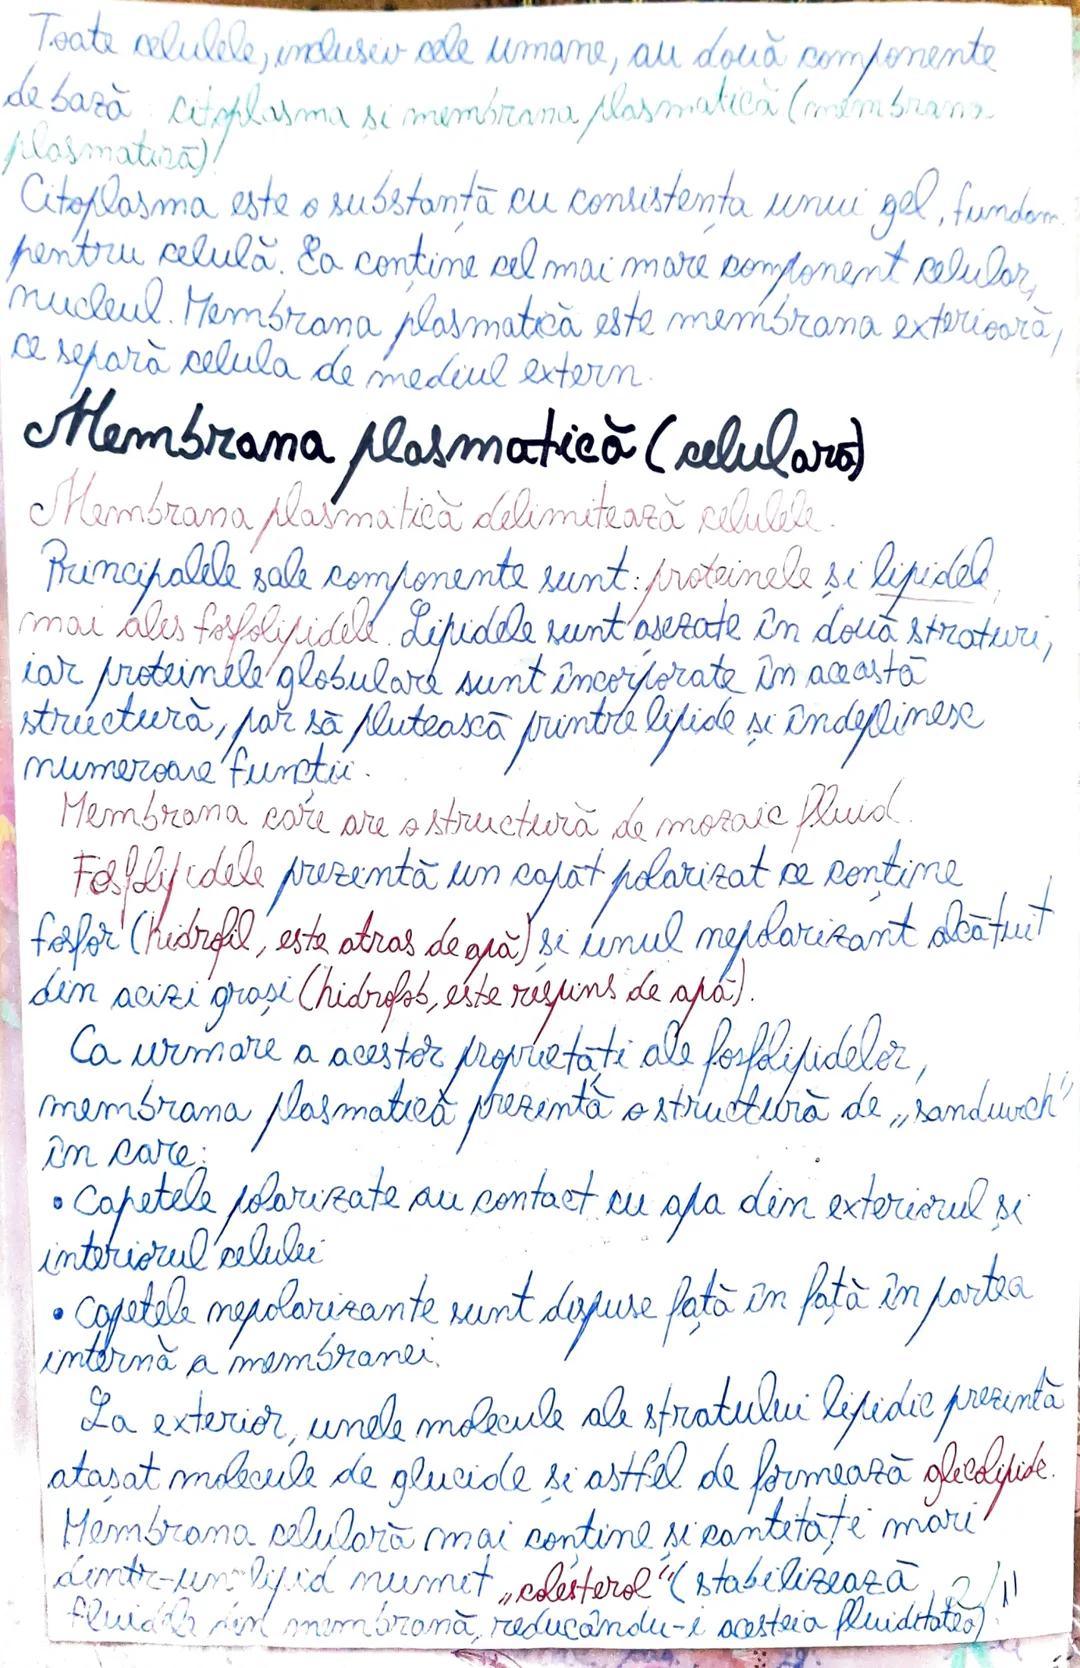 Toate celulele, inclusiv cele umane, au două componente
de bază: citoplasma și membrana plasmatică (membrana
plasmatică)!
Citoplasma este o substanță cu consistența unui gel, fundam.
pentru celulă. Ea conține cel mai mare component celular,
nucleul. Membrana plasmatică este membrana exterioară,
ce separă celula de mediul extern.
Membrana plasmatică (celulară)
Membrana plasmatică delimitează celulele.
Principalele sale componente sunt: proteinele și lipidele,
mai ales fosfolipidele. Lipidele sunt așezate în două straturi,
iar proteinele globulare sunt încorporate în această
structură, par să plutească printre lipide și îndeplinesc
numeroase funcții.
Membrana care are o structură de mozaic fluid.
Fosfolipidele prezentă un capăt polarizat ce conține
fosfor (hidrofil, este atras de apă) și unul nepolarizant alcătuit
din acizi grași (hidrofob, este respins de apă).
Ca urmare a acestor proprietăți ale fosfolipidelor,
membrana plasmatică prezintă o structură de „sandwich"
în care:
• Capetele polarizate au contact cu apa din exteriorul și
interiorul celulei
• Capetele nepolarizante sunt dispuse față în față în partea
internă a membranei.
La exterior, unele molecule ale stratului lipidic prezintă
atașat molecule de glucide și astfel de formează glicolipide.
Membrana celulară mai conține și cantități mari
dintr-un lipid numit „colesterol" (stabilizează
din membrană, reducându-i acesteia fluiditatea)!